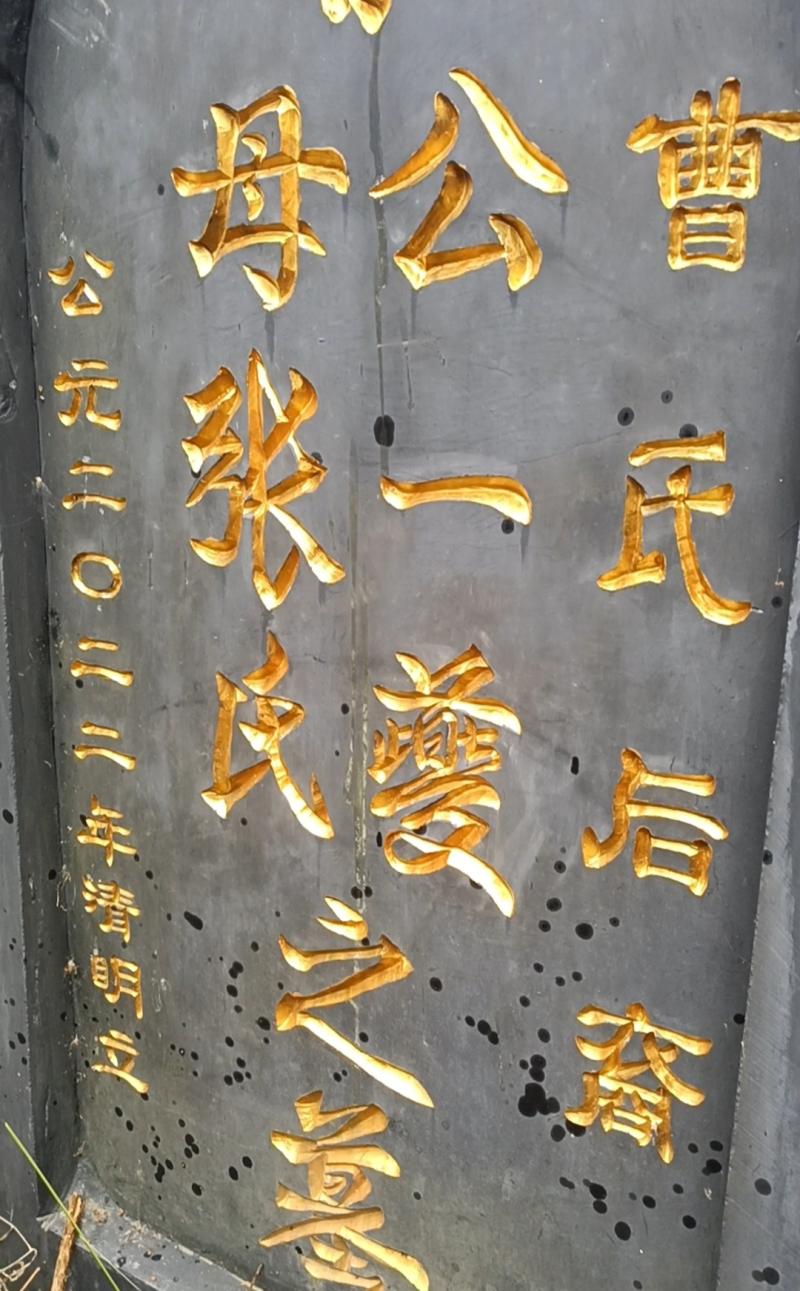 曹氏后裔
公一夔
母张氏
之墓
公元二〇二二年清明立